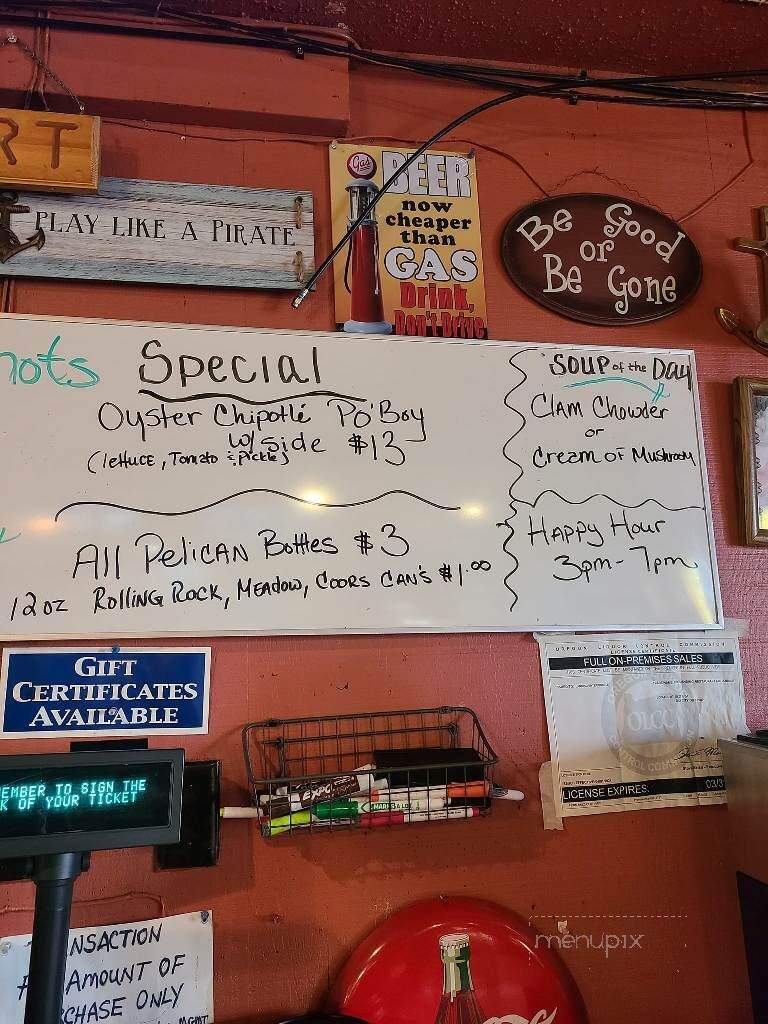 RT
PLAY LIKE A PIRATE
Gas
BEER
now
cheaper
than
GAS
Drink,
Don't Drive
Be Good
or
Be Gone
hots
Special
Oyster Chipotlé Po'Boy
w/ side $13
(lettuce, Tomato & Pickle)
All Pelican Bottles $3
12oz Rolling Rock, Meadow, Coors Can's $1.00
Soup of the Day
Clam Chowder
or
Cream of Mushroom
Happy Hour
3pm-7pm
GIFT
CERTIFICATES
AVAILABLE
EMBER TO SIGN THE
K OF YOUR TICKET
EXPO
OREGON LIQUOR CONTROL COMMISSION
LICENSE CERTIFICATE
FULL ON-PREMISES SALES
OLCC
CONTROL COMM
LICENSE EXPIRES:
03/3
NSACTION
AMOUNT OF
CHASE ONLY
MGMT
menupix